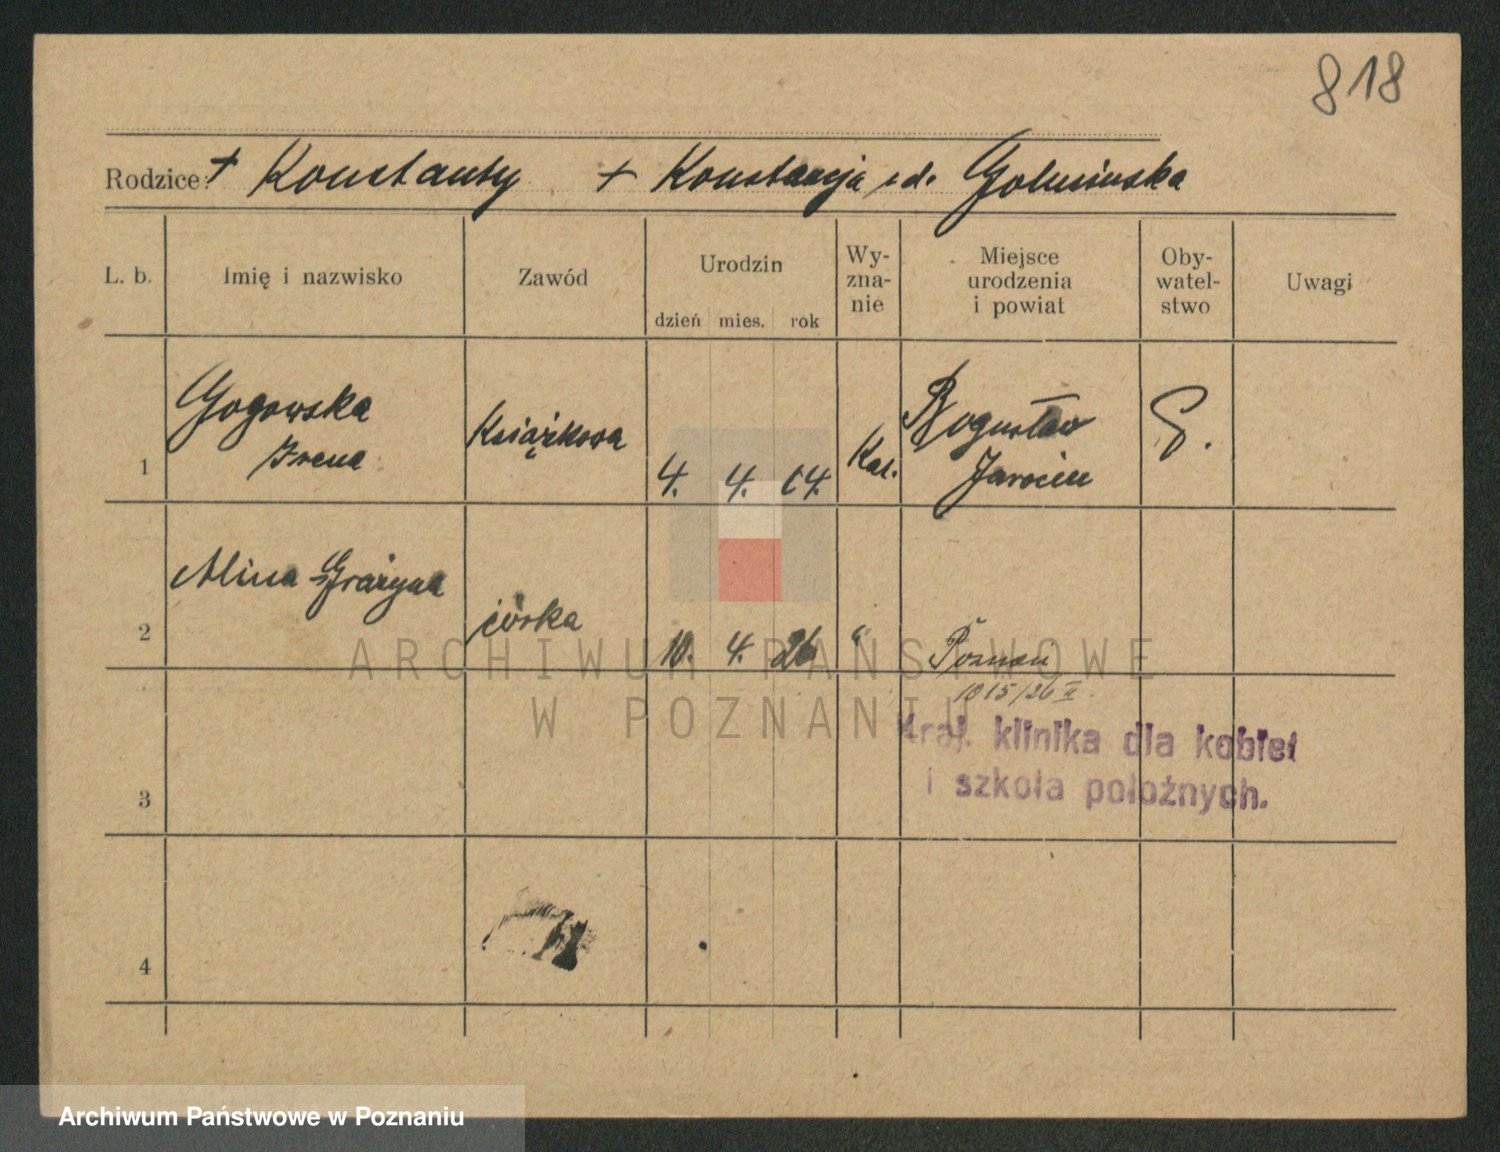 818
Rodzice: + Konstanty + Konstancja z d. Golusińska
L. b. Imię i nazwisko Zawód Urodzin Wy- Miejsce Oby- Uwagi
zna- urodzenia watel-
nie i powiat stwo
dzień mies. rok
Gogowska Książkowa Bogusław
1 Irena 4. 4. 04. Kat. Jarocin
Alina Grażyna
2 córka 10. 4. 26 " Poznań
1015/26 II.
Kraj. klinika dla kobiet
i szkoła położnych.
3
4
ARCHIWUM PAŃSTWOWE
W POZNANIU
Archiwum Państwowe w Poznaniu